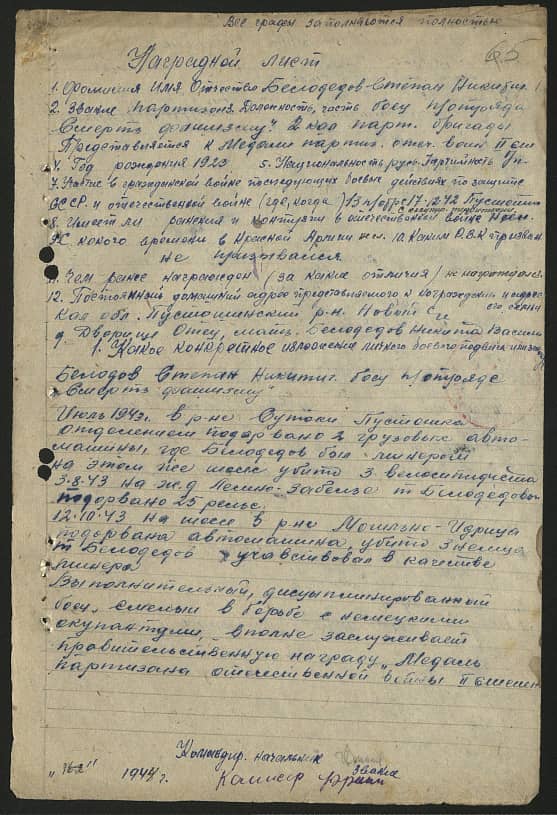 Все графы заполняются полностью
65
Наградной лист
1. Фамилия Имя Отчество Белодедов Степан Никитич
2. Звание партизан. Должность, часть боец п/отряда
"Смерть фашизму" 2-кал парт. бригады
Представляется к Медали партиз. отеч. войн II ст
4. Год рождения 1923 5. Национальность русс. Партийность б/п
7. Участие в гражданской войне последующих боевых действиях по защите
СССР и отечественной войне (где, когда)
8. Имеет ли ранения и контузии в отечественной войне
9. С какого времени в Красной Армии 10. Каким Р.В.К призван
не призывался
11. Чем ранее награжден (за какие отличия) не награждался
12. Постоянный домашний адрес представляемого к награждению и адрес его семьи
кая обл. Пустошинский р-н. Новый
д. Дворище Отец, мать. Белодедов Никита
1. Какое конкретное изложение личного боевого подвига
Белодедов Степан Никитич. боец п/отряда
"Смерть фашизму"
Июль 1943г. в р-не Сутоки Пустошка
отделением подорвано 2 грузовых авто-
машины, где Белодедов был минером
на этом же шоссе убито 3 велосипедиста
3.8.43 на ж.д Нащекино-Забелье т Белодедовым
подорвано 25 рельс.
12.10.43 на шоссе в р-не Могильно-Идрица
подорвана автомашина, убито 3 немца
т Белодедов учавствовал в качестве
минера
Выполнительный, дисциплинированный
боец, смелый в борьбе с немецкими
окупантами, вполне заслуживает
правительственную награду "Медаль
партизана отечественной войны II степени
Командир. начальник
звание
1944 г.